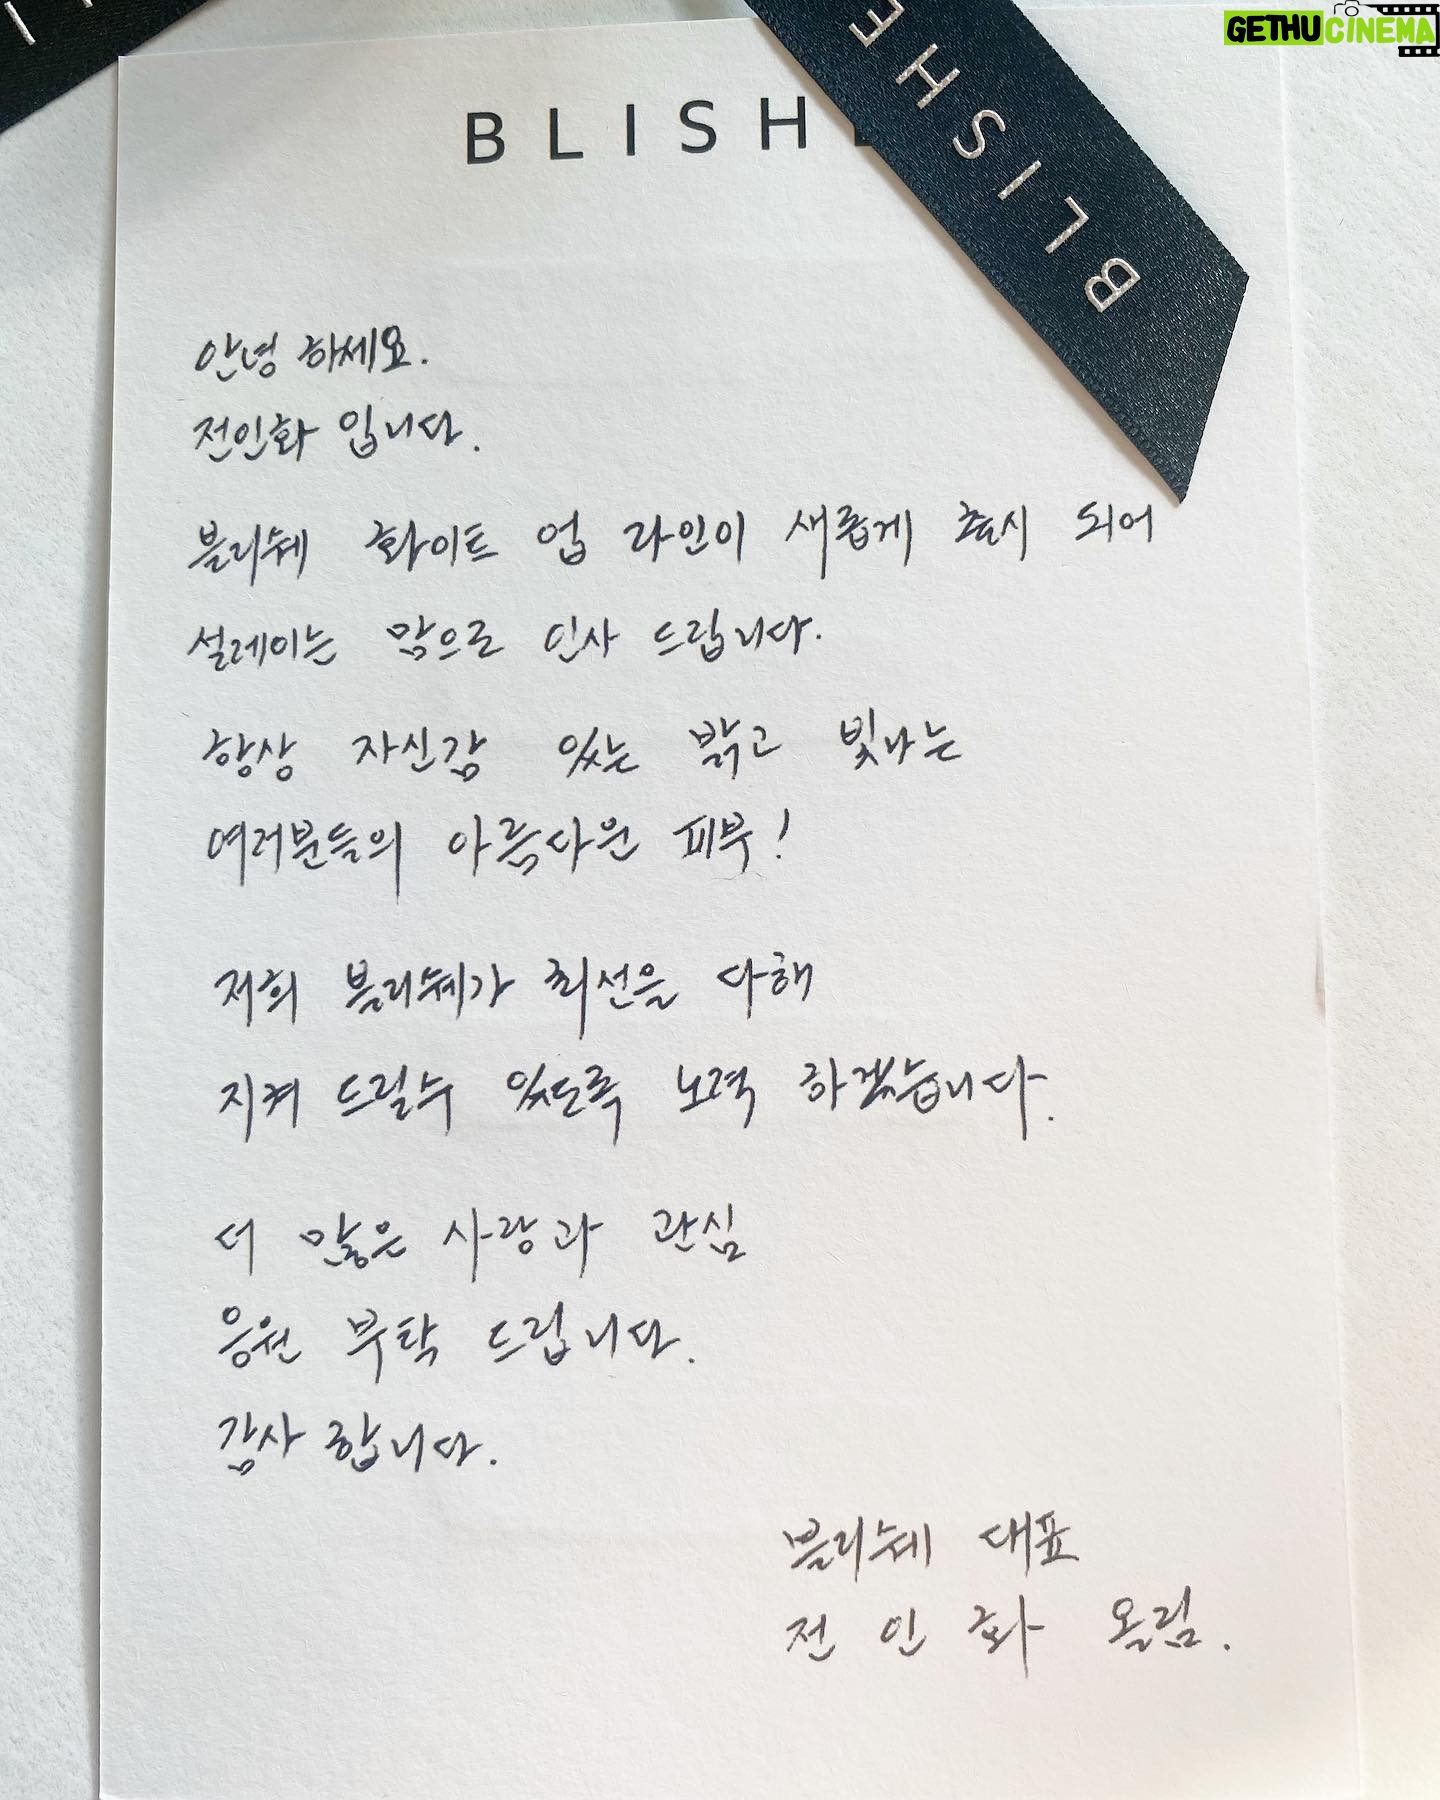 GETHUCINEMA
BLISHE
BLISHE
안녕 하세요.
전인화 입니다.
블리쉐 화이트 업 라인이 새롭게 출시 되어
설레이는 맘으로 인사 드립니다.
항상 자신감 있는 밝고 빛나는
여러분들의 아름다운 피부!
저희 블리쉐가 최선을 다해
지켜 드릴수 있도록 노력 하겠습니다.
더 많은 사랑과 관심
응원 부탁 드립니다.
감사 합니다.
블리쉐 대표
전 인 화 올림.